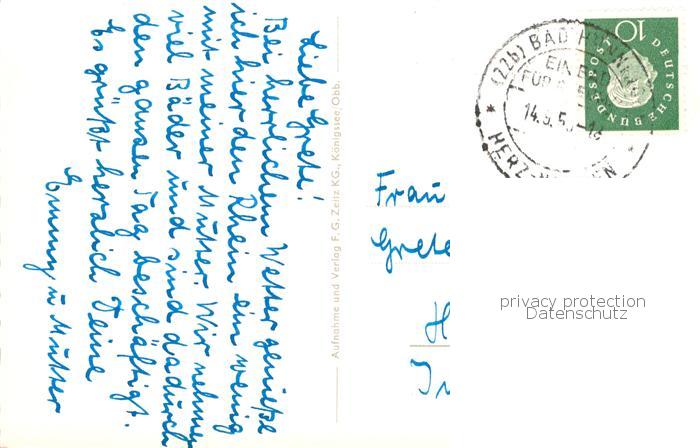 Liebe Grete!
Bei herrlichem Wetter genieße
ich hier den Rhein ein wenig
mit meiner Mutter. Wir nehmen
viel Bäder und sind dadurch
den ganzen Tag beschäftigt.
Es grüßt herzlich Deine
Emmy u Mutter
Aufnahme und Verlag F. G. Zeitz KG., Königssee/Obb.
Frau
Grete
H
(22b) BAD
EIN
FÜR
14.9.5
HERZ
10
DEUTSCHE BUNDESPOST
privacy protection
Datenschutz